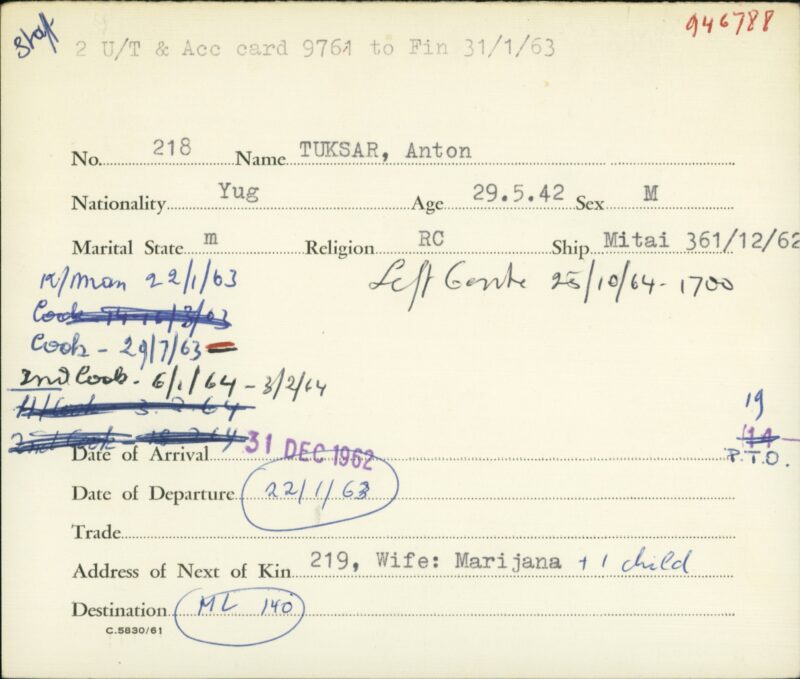 Staff
946788
2 U/T & Acc card 9761 to Fin 31/1/63
No. 218 Name TUKSAR, Anton
Nationality Yug Age 29.5.42 Sex M
Marital State m Religion RC Ship Mitai 361/12/62
K/man 22/1/63
Left Centre 25/10/64 - 1700
Cook
Cook - 29/7/63
2nd Cook - 6/1/64 - 3/2/64
19
14
2nd Cook
P.T.O.
Date of Arrival 31 DEC 1962
Date of Departure 22/1/63
Trade
Address of Next of Kin 219, Wife: Marijana + 1 child
Destination ML 140
C.5830/61